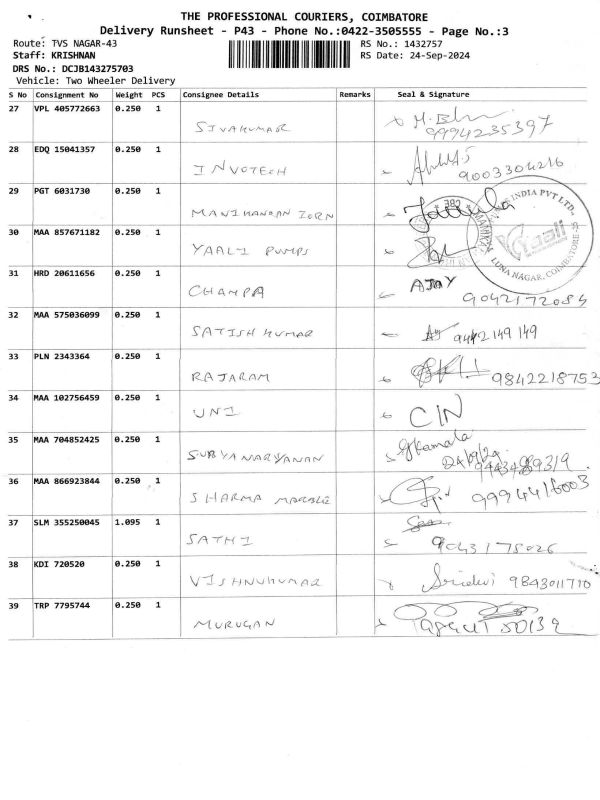 THE PROFESSIONAL COURIERS, COIMBATORE
Delivery Runsheet - P43 - Phone No.:0422-3505555 - Page No.:3
Route: TVS NAGAR-43 RS No.: 1432757
Staff: KRISHNAN RS Date: 24-Sep-2024
DRS No.: DCJB143275703
Vehicle: Two Wheeler Delivery
S No Consignment No Weight PCS Consignee Details Remarks Seal & Signature
27 VPL 405772663 0.250 1 SIVAKUMAR 9994235397
28 EDQ 15041357 0.250 1 INVOTECH 9003304216
29 PGT 6031730 0.250 1 MANIKANDAN
INDIA PVT LTD.
30 MAA 857671182 0.250 1 YAALI PUMPS
Yaali
LUNA NAGAR, COIMBATORE-25
31 HRD 20611656 0.250 1 CHAMPA AJAY 9042172084
32 MAA 575036099 0.250 1 SATISH KUMAR 9442149149
33 PLN 2343364 0.250 1 RAJARAM 9842218753
34 MAA 102756459 0.250 1 UNI CIN
35 MAA 704852425 0.250 1 SURYANARYANAN 24/9/24
36 MAA 866923844 0.250 1 SHARMA MARBLE 9994416003
37 SLM 355250045 1.095 1 SATHI 9043175026
38 KDI 720520 0.250 1 VISHNUKUMAR Sridevi 9843011710
39 TRP 7795744 0.250 1 MURUGAN